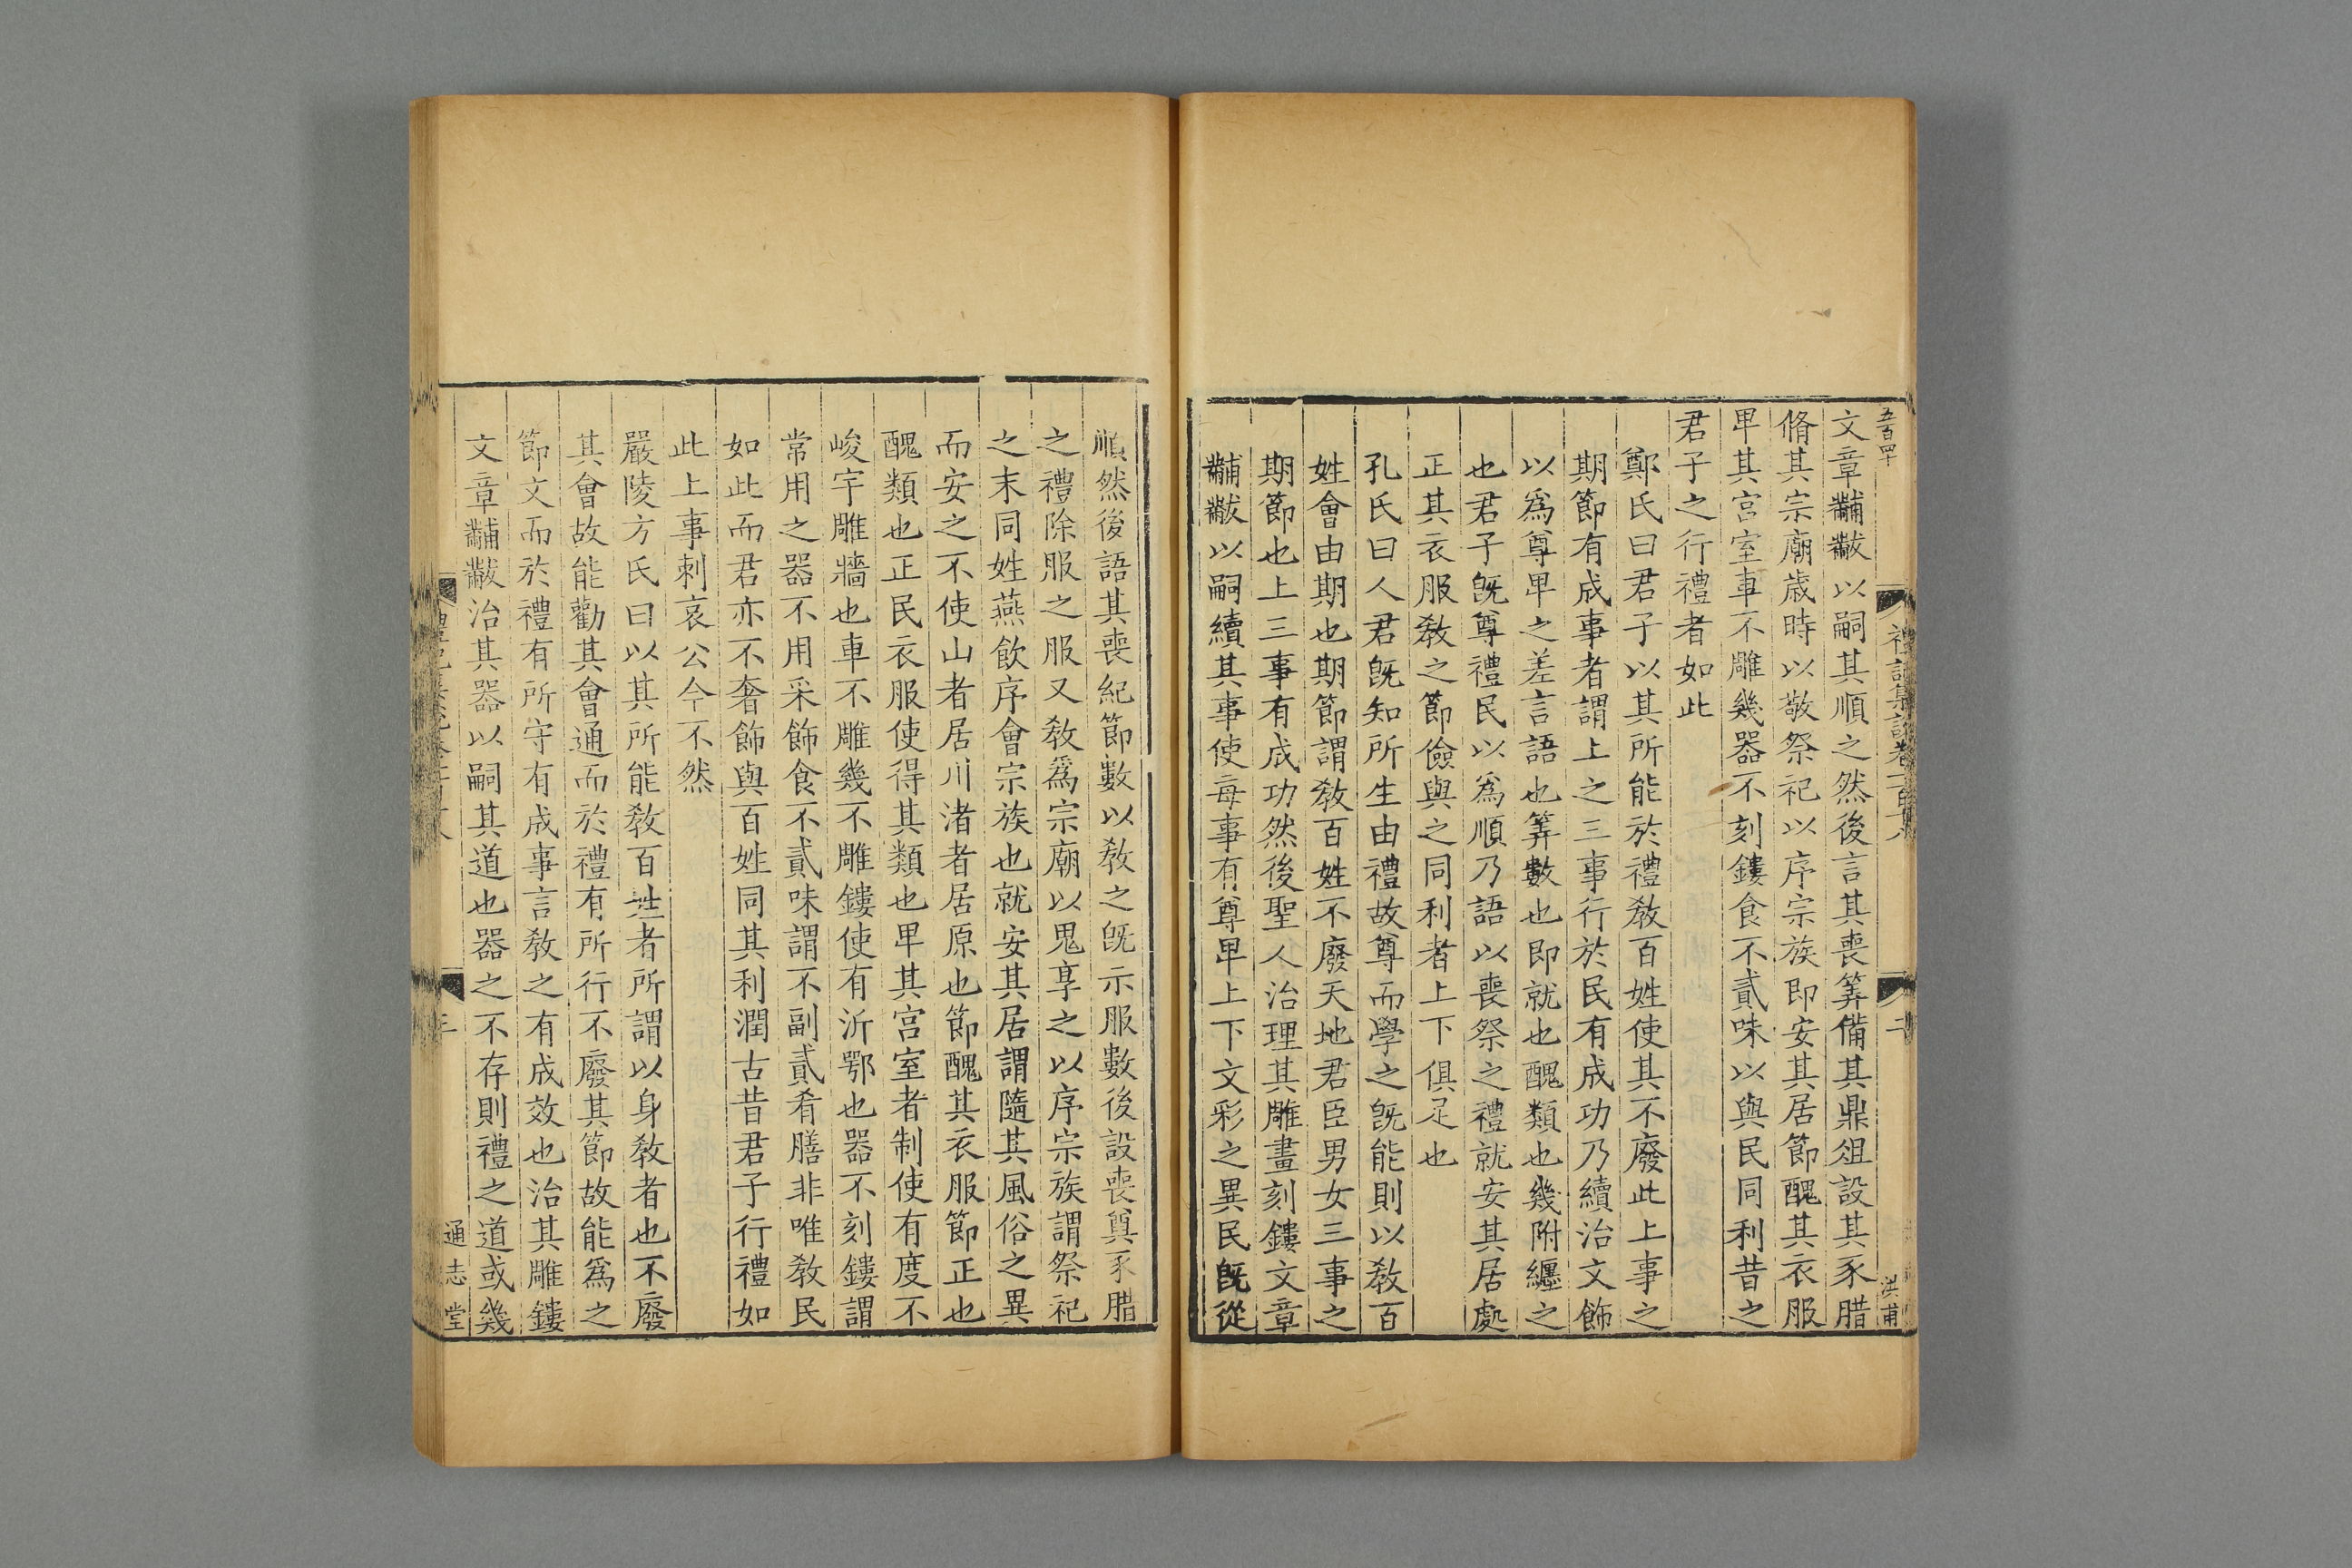 五百四十
禮記集說卷一百十八
二
洪甫
文章黼黻以嗣其順之然後言其喪筭備其鼎俎設其豕腊
脩其宗廟歳時以敬祭祀以序宗族即安其居節醜其衣服
卑其宮室車不雕幾器不刻鏤食不貳味以與民同利昔之
君子之行禮者如此
鄭氏曰君子以其所能於禮敎百姓使其不廢此上事之
期節有成事者謂上之三事行於民有成功乃續治文飾
以爲尊卑之差言語也筭數也即就也醜類也幾附纏之
也君子旣尊禮民以爲順乃語以喪祭之禮就安其居處
正其衣服敎之節儉與之同利者上下俱足也
孔氏曰人君旣知所生由禮故尊而學之旣能則以敎百
姓會由期也期節謂敎百姓不廢天地君臣男女三事之
期節也上三事有成功然後聖人治理其雕畫刻鏤文章
黼黻以嗣續其事使每事有尊卑上下文彩之異民旣從
順然後語其喪紀節數以敎之旣示服數後設喪奠豕腊
之禮除服之服又敎爲宗廟以鬼享之以序宗族謂祭祀
之末同姓燕飲序會宗族也就安其居謂隨其風俗之異
而安之不使山者居川渚者居原也節醜其衣服節正也
醜類也正民衣服使得其類也卑其宮室者制使有度不
峻宇雕牆也車不雕幾不雕鏤使有沂鄂也器不刻鏤謂
常用之器不用采飾食不貳味謂不副貳肴膳非唯敎民
如此而君亦不奢飾與百姓同其利潤古昔君子行禮如
此上事刺哀公今不然
嚴陵方氏曰以其所能敎百姓者所謂以身敎者也不廢
其會故能勸其會通而於禮有所行不廢其節故能爲之
節文而於禮有所守有成事言敎之有成效也治其雕鏤
文章黼黻治其器以嗣其道也器之不存則禮之道或幾
三
通志堂